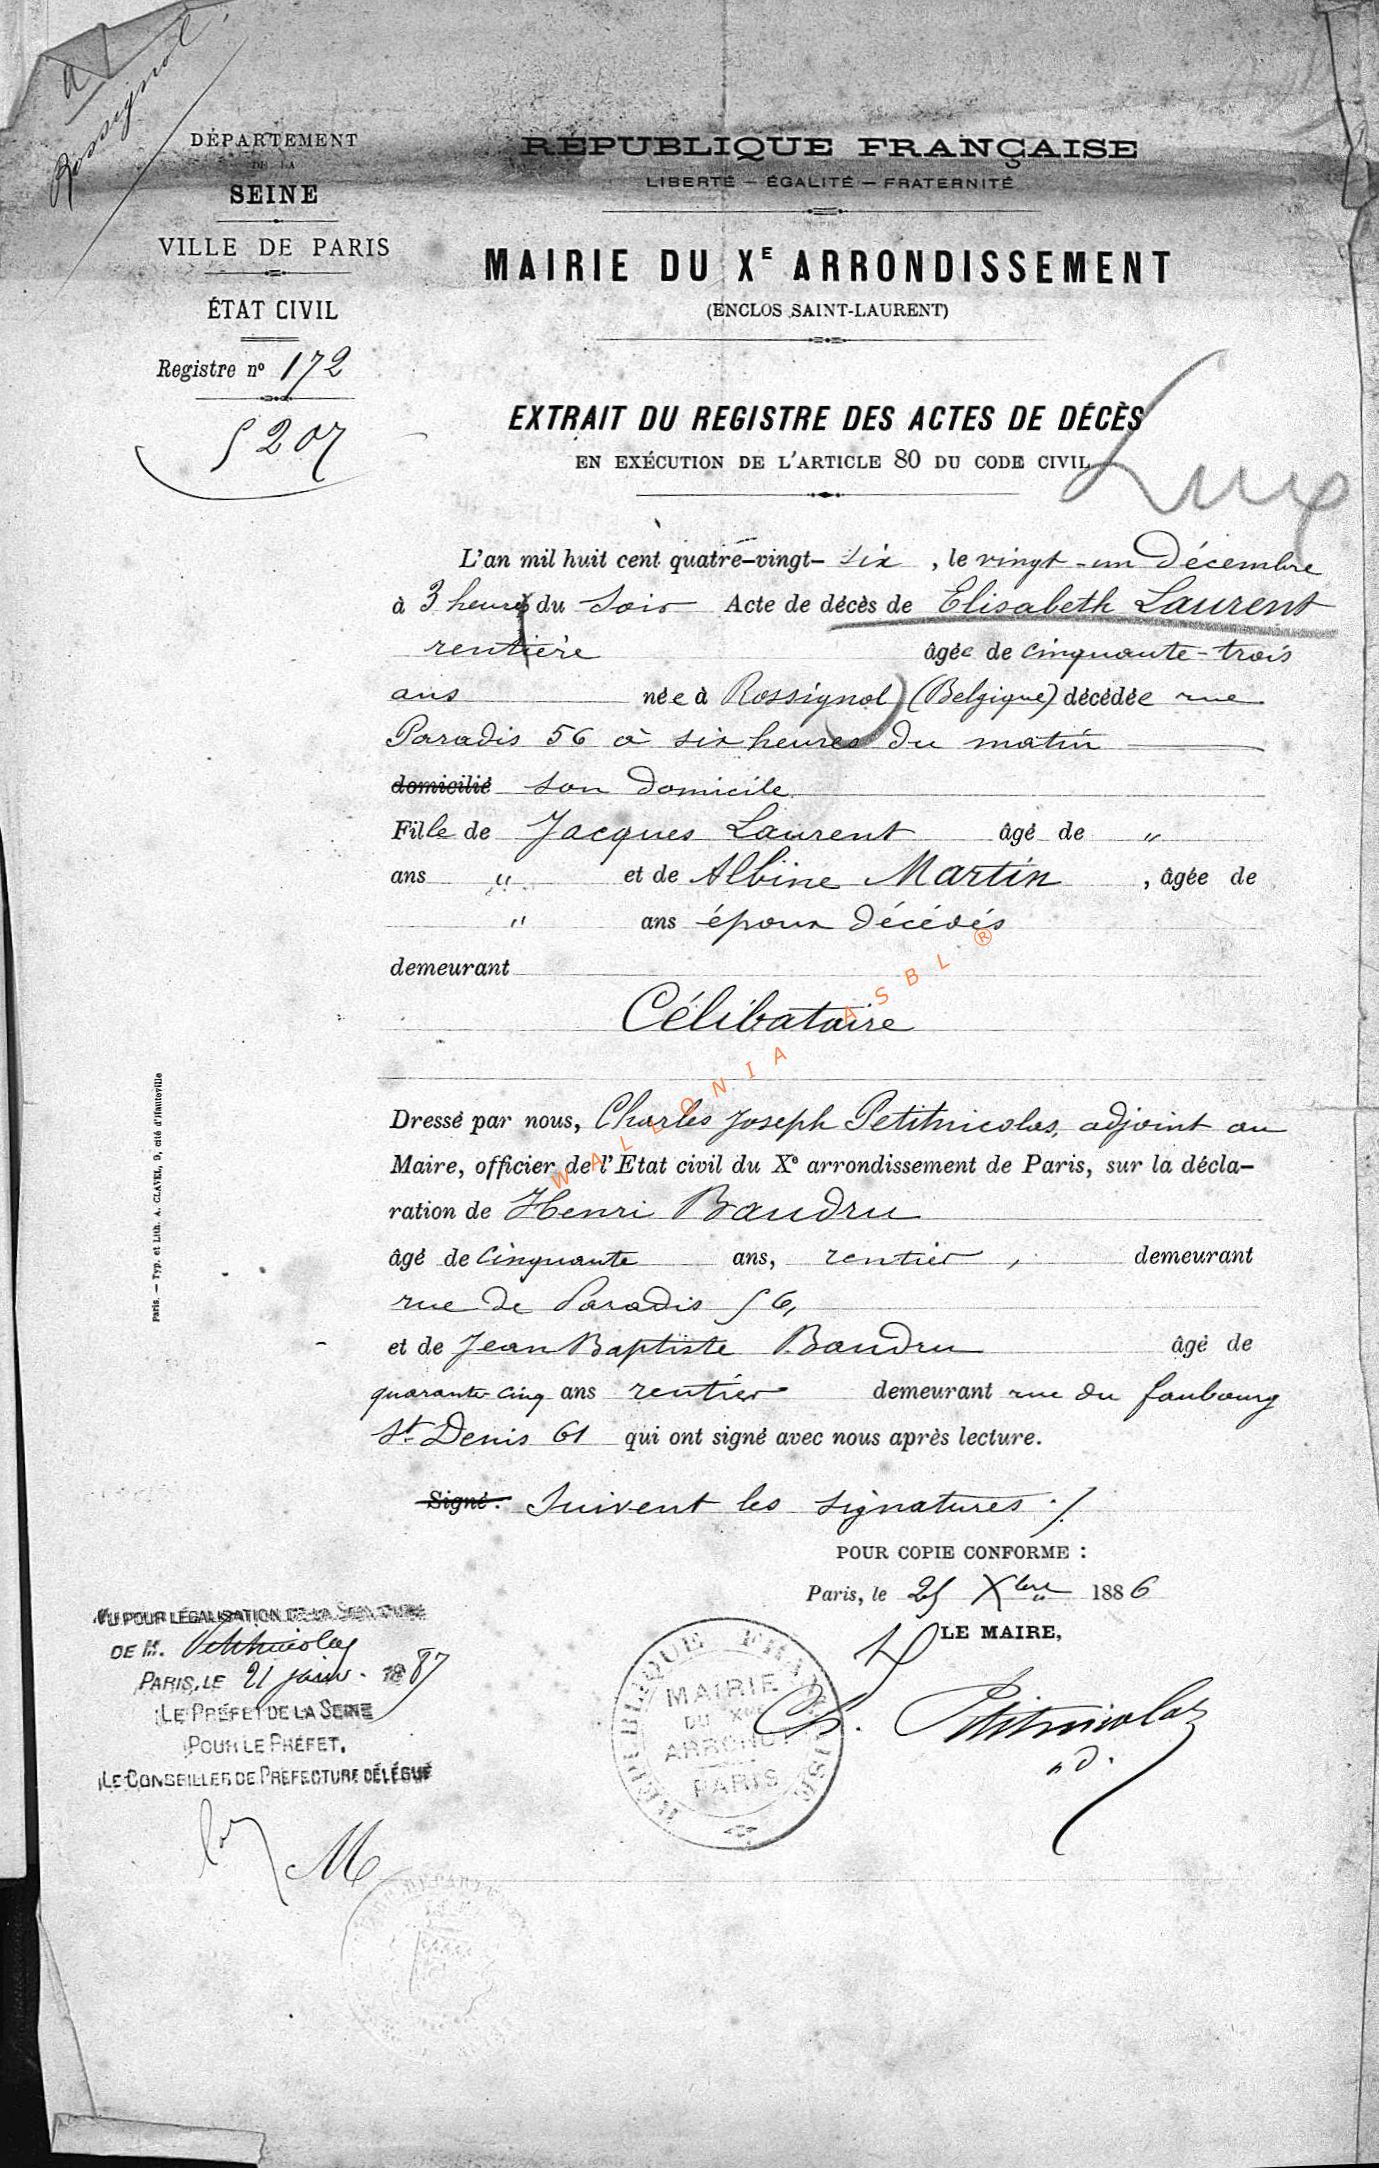 a
Rossignol
DÉPARTEMENT
DE LA
SEINE
VILLE DE PARIS
ÉTAT CIVIL
Registre nº 172
5207
RÉPUBLIQUE FRANÇAISE
LIBERTÉ — ÉGALITÉ — FRATERNITÉ
MAIRIE DU Xᴱ ARRONDISSEMENT
(ENCLOS SAINT-LAURENT)
EXTRAIT DU REGISTRE DES ACTES DE DÉCÈS
EN EXÉCUTION DE L'ARTICLE 80 DU CODE CIVIL
Lux
L'an mil huit cent quatre-vingt- six , le vingt-un Décembre
à 3 heures du soir Acte de décès de Elisabeth Laurent
rentière âgée de cinquante-trois
ans née à Rossignol (Belgique) décédée rue
Paradis 56 à six heures du matin
domicilié son domicile
Fille de Jacques Laurent âgé de "
ans " et de Albine Martin , âgée de
" ans époux décédés
demeurant
Célibataire
Dressé par nous, Charles Joseph Petitnicolas, adjoint au
Maire, officier de l'Etat civil du Xᵉ arrondissement de Paris, sur la décla-
ration de Henri Baudru
âgé de cinquante ans, rentier , demeurant
rue de Paradis 56,
et de Jean Baptiste Baudru âgé de
quarante cinq ans rentier demeurant rue du faubourg
St Denis 61 qui ont signé avec nous après lecture.
Signé: Suivent les signatures ./.
POUR COPIE CONFORME :
Paris, le 25 Xbre 1886
LE MAIRE,
Ch. Petitnicolas
ad.
RÉPUBLIQUE FRANÇAISE
MAIRIE
DU Xme
ARRONDT
PARIS
VU POUR LÉGALISATION DE LA SIGNATURE
DE M. Petitnicolas
PARIS, LE 21 janv. 1887
LE PRÉFET DE LA SEINE
POUR LE PRÉFET,
LE CONSEILLER DE PRÉFECTURE DÉLÉGUÉ
Paris. — Typ. et Lith. A. CLAVEL, 9, cité d'Hauteville
WALLONIA ASBL ®